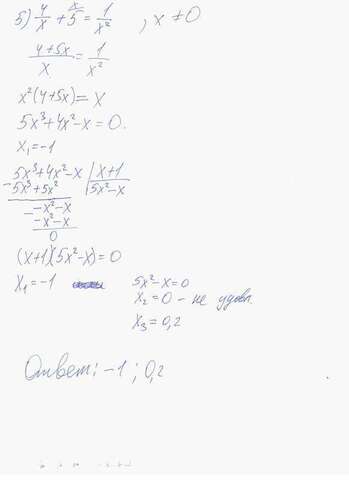 5) 4/x + 5^x = 1/x² , x ≠ 0
(4+5x)/x = 1/x²
x²(4+5x) = x
5x³+4x²-x=0.
x₁=-1
5x³+4x²-x | x+1
-5x³+5x² | 5x²-x
- -x²-x
-x²-x
0
(x+1)(5x²-x)=0
x₁=-1
5x²-x=0
x₂=0 - не удовл.
x₃=0,2
Ответ: -1; 0,2